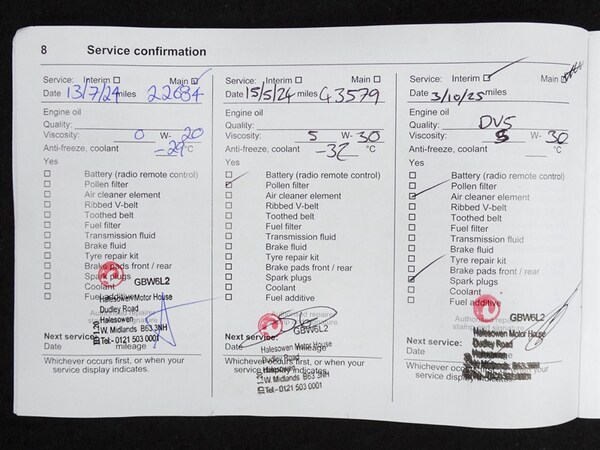 8 Service confirmation
Service: Interim ☐ Main ☑
Date 13/7/24 miles 22684
Engine oil
Quality:
Viscosity: 0 W- 20
Anti-freeze, coolant -29 °C
Yes
☐ Battery (radio remote control)
☐ Pollen filter
☐ Air cleaner element
☐ Ribbed V-belt
☐ Toothed belt
☐ Fuel filter
☐ Transmission fluid
☐ Brake fluid
☐ Tyre repair kit
☐ Brake pads front / rear
☐ Spark plugs
☐ Coolant
☐ Fuel additive
GBW6L2
Halesowen Motor House
Dudley Road
Halesowen
W. Midlands B63 3NH
Tel:- 0121 503 0001
Next service:
Date mileage
Whichever occurs first, or when your
service display indicates.
Service: Interim ☐ Main ☐
Date 15/5/24 miles 43579
Engine oil
Quality:
Viscosity: 5 W- 30
Anti-freeze, coolant -32 °C
Yes
☐ Battery (radio remote control)
☑ Pollen filter
☐ Air cleaner element
☐ Ribbed V-belt
☐ Toothed belt
☐ Fuel filter
☐ Transmission fluid
☐ Brake fluid
☐ Tyre repair kit
☐ Brake pads front / rear
☐ Spark plugs
☐ Coolant
☐ Fuel additive
GBW6L2
Halesowen Motor House
Dudley Road
Halesowen
W. Midlands B63 3NH
Tel:- 0121 503 0001
Next service:
Date mileage
Whichever occurs first, or when your
service display indicates.
Service: Interim ☑ Main ☐
Date 3/10/25 miles
Engine oil
Quality: DV5
Viscosity: 5 W- 30
Anti-freeze, coolant °C
Yes
☐ Battery (radio remote control)
☐ Pollen filter
☑ Air cleaner element
☐ Ribbed V-belt
☐ Toothed belt
☐ Fuel filter
☐ Transmission fluid
☐ Brake fluid
☐ Tyre repair kit
☐ Brake pads front / rear
☑ Spark plugs
☐ Coolant
☐ Fuel additive
GBW6L2
Halesowen Motor House
Dudley Road
Halesowen
Next service:
Date
Whichever occurs first, or when your
service display indicates.